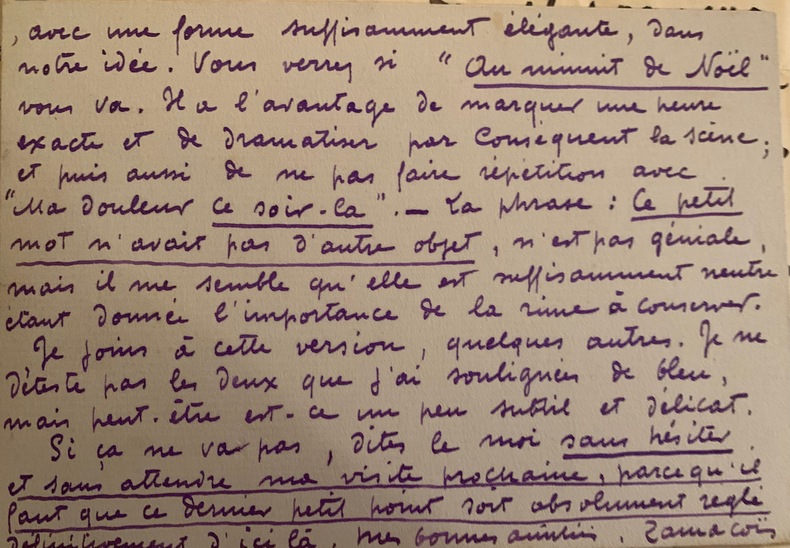 , avec une forme suffisamment élégante, dans
notre idée. Vous verrez si "Au minuit de Noël"
vous va. Il a l'avantage de marquer une heure
exacte et de dramatiser par conséquent la scène;
et puis aussi de ne pas faire répétition avec
"Ma douleur ce soir-là". — La phrase : Ce petit
mot n'avait pas d'autre objet, n'est pas géniale,
mais il me semble qu'elle est suffisamment neutre
étant donnée l'importance de la rime à conserver.
Je joins à cette version, quelques autres. Je ne
déteste pas les deux que j'ai soulignées de bleu,
mais peut-être est-ce un peu subtil et délicat.
Si ça ne va pas, dites le moi sans hésiter
et sans attendre ma visite prochaine, parce qu'il
faut que ce dernier petit point soit absolument réglé
définitivement d'ici là. Mes bonnes amitiés. Zamacoïs